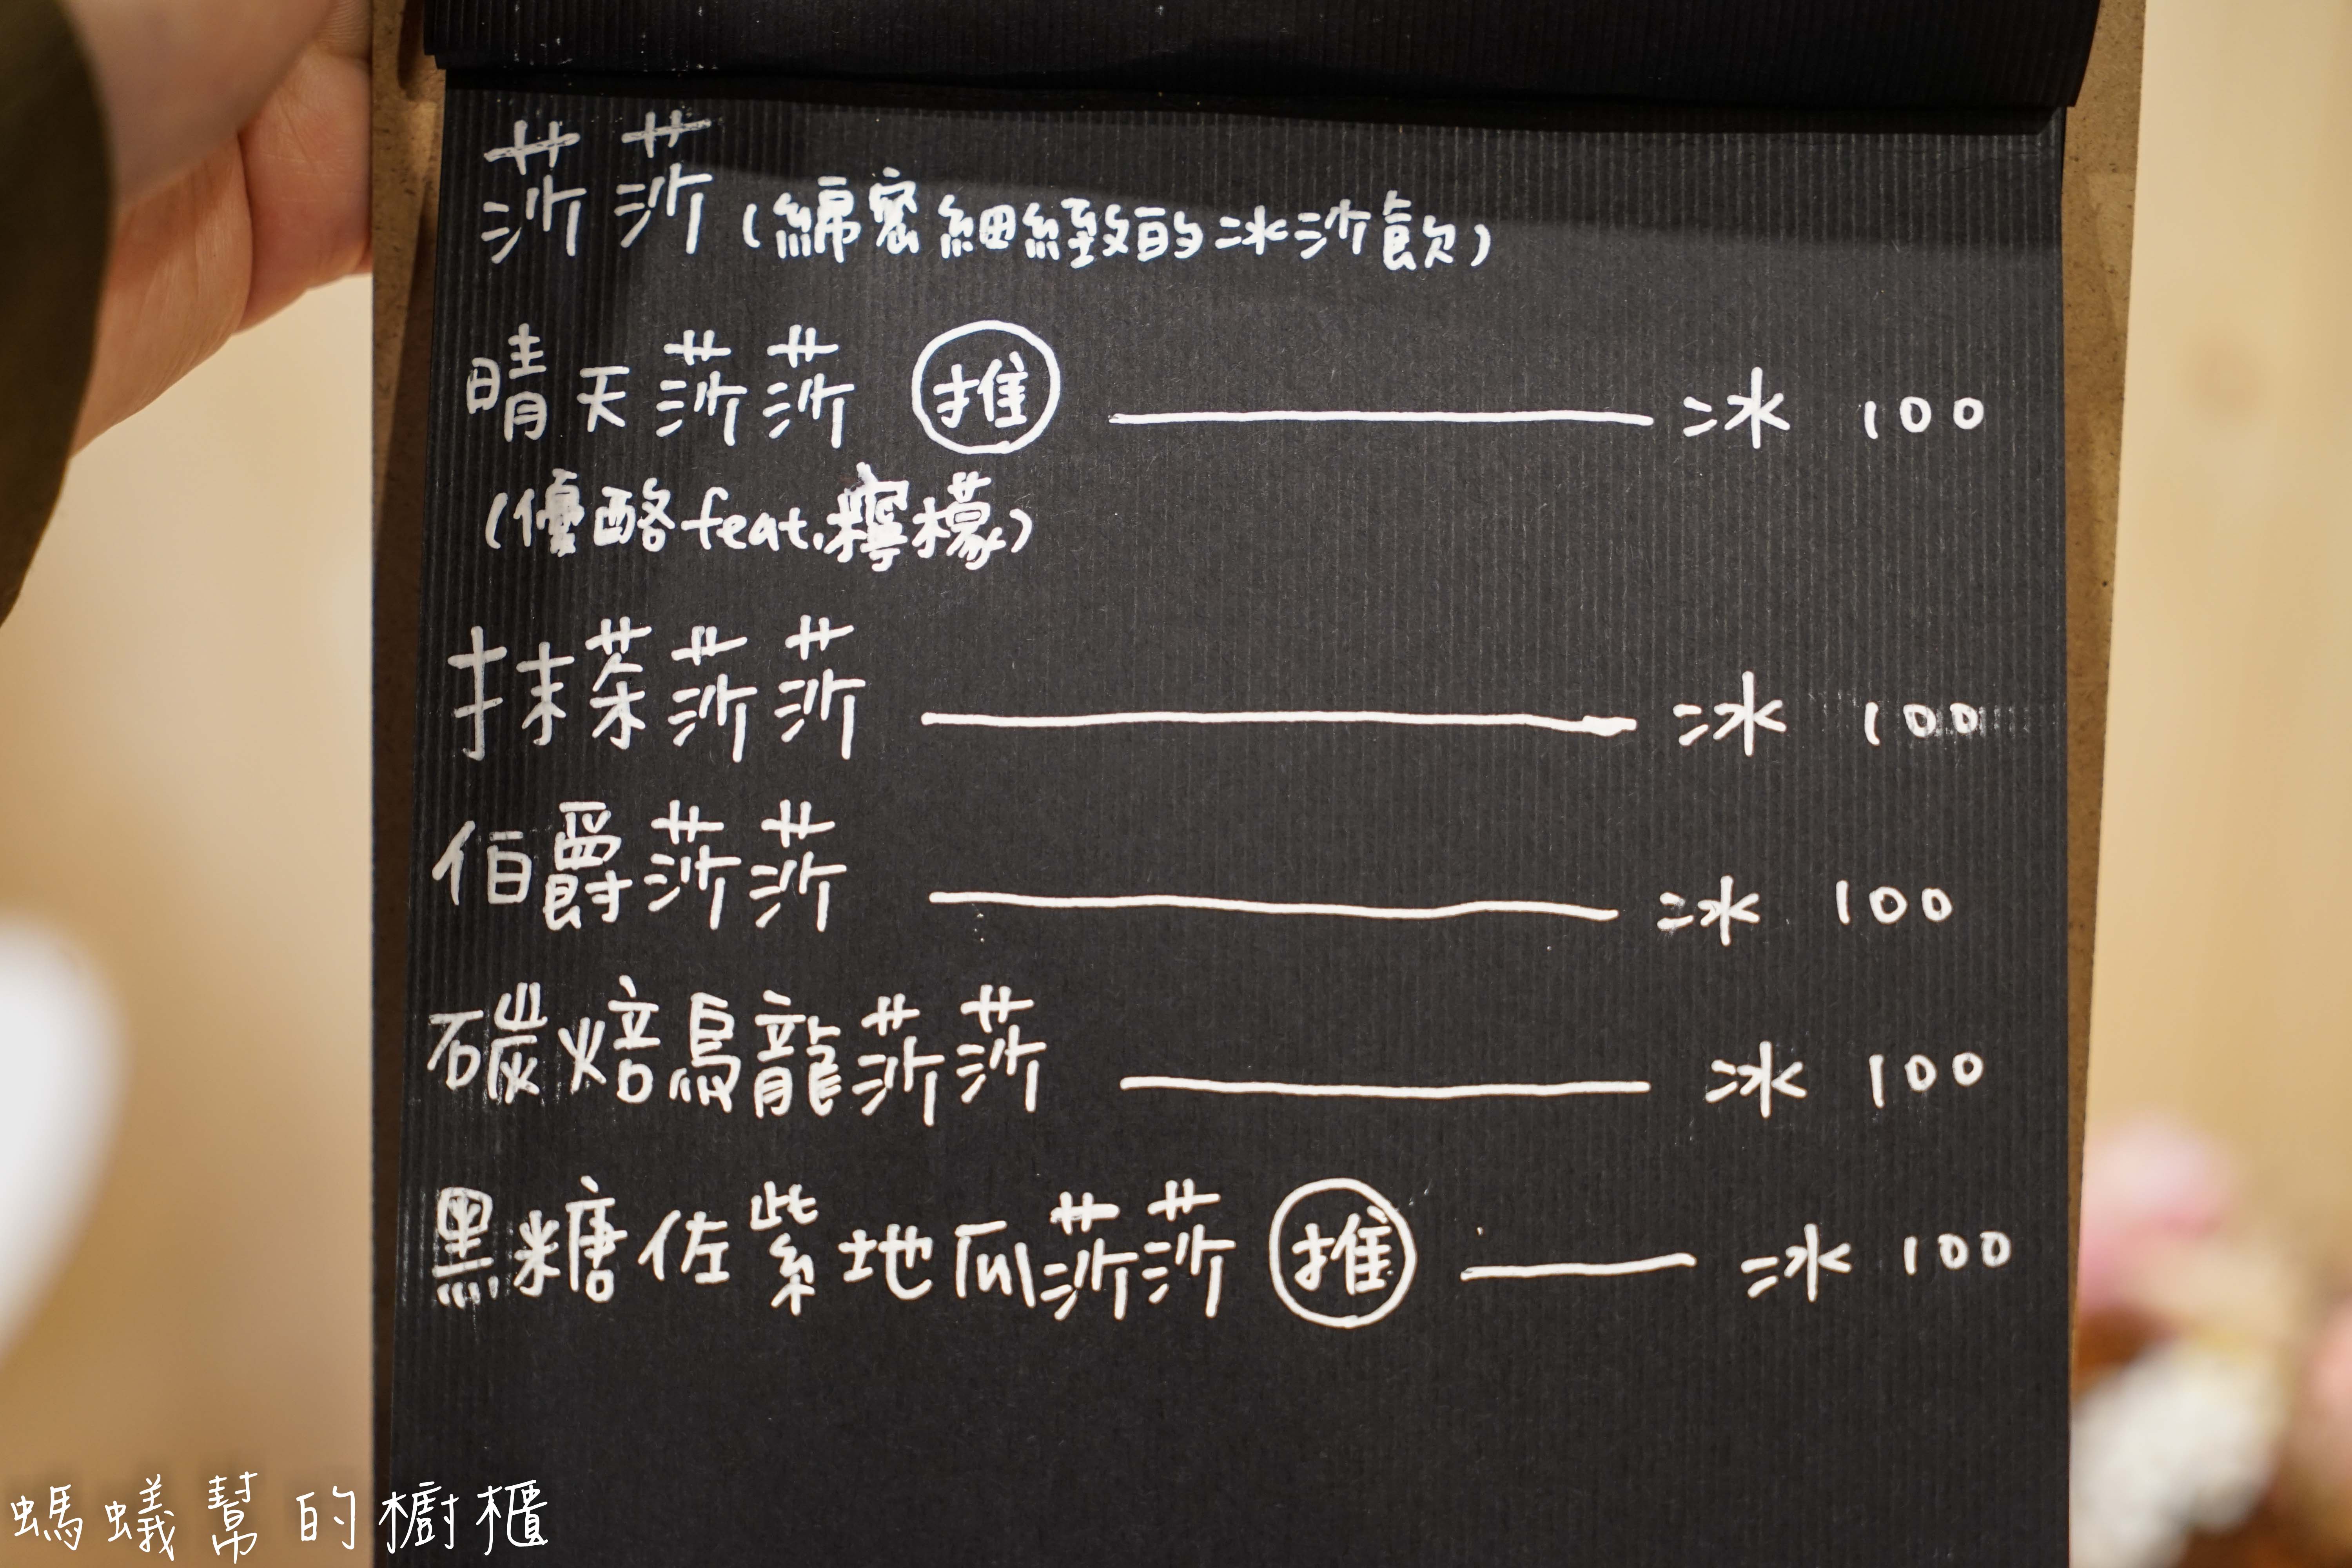 莎莎(綿密細緻的冰沙飲)
晴天莎莎 推 冰 100
(優酪feat.檸檬)
抹茶莎莎 冰 100
伯爵莎莎 冰 100
碳焙烏龍莎莎 冰 100
黑糖佐紫地瓜莎莎 推 冰 100
螞蟻幫的櫥櫃